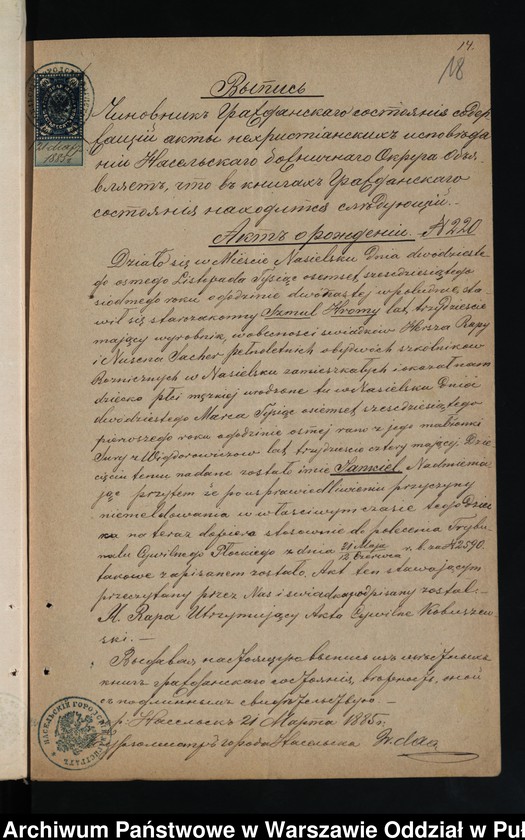 14.
18
21 Мар.
1885 г.
Выпись
Чиновникъ Гражданскаго состоянія содер
жащій акты нехристіанскихъ исповѣда
ній Насельскаго божничнаго Округа объя
вляетъ, что въ книгахъ Гражданскаго
состоянія находится слѣдующій.-
Актъ о рожденіи. N 220
Działo się w Mieście Nasielsku Dnia dwudzieste
go osmego Listopada Tysiąc osiemset szesdziesiątego
siodmego roku o godzinie dwunastej w południe, sta
wił się starozakonny Szmul Hromy lat trzydzieście
mający wyrobnik, w obecności swiadków Herza Rapy
i Nusena Sachor pełnoletnich obydwóch szkolników
Boznicznych w Nasielsku zamieszkałych i okazał nam
dziecko płci męzkiej urodzone tu w Nasielsku Dnia
dwudziestego Marca Tysiąc osiemset szesdziesiątego
pierwszego roku o godzinie osmej rano z jego małżonki
Sury z Wigdorowiczow lat trzydzieście cztery mającej. Dzie
cięciu temu nadane zostało imie Jankiel. Nadmienia
jąc przytem że po usprawiedliwieniu przyczyny
niemeldowania w właściwym czasie tego Dziec
ka na teraz dopiero stosownie do polecenia Trybu
nału Cywilnego Płockiego z dnia 21 Maja / 12 Czerwca r. b. za N 2590.
takowe zapisanem zostało. Akt ten stawającym
przeczytany przez Nas i swiadka podpisany został:-
H. Rapa Utrzymujący Akta Cywilne Kobuszew-
ski. -
Выдавая настоящую выпись изъ мѣстныхъ
книгъ гражданскаго состоянія, вѣрность, той
съ подлиннымъ свидѣтельствую -
г. Насельскъ 21 Марта 1885 г.
Бургомистръ города Насельска
Archiwum Państwowe w Warszawie Oddział w Puł